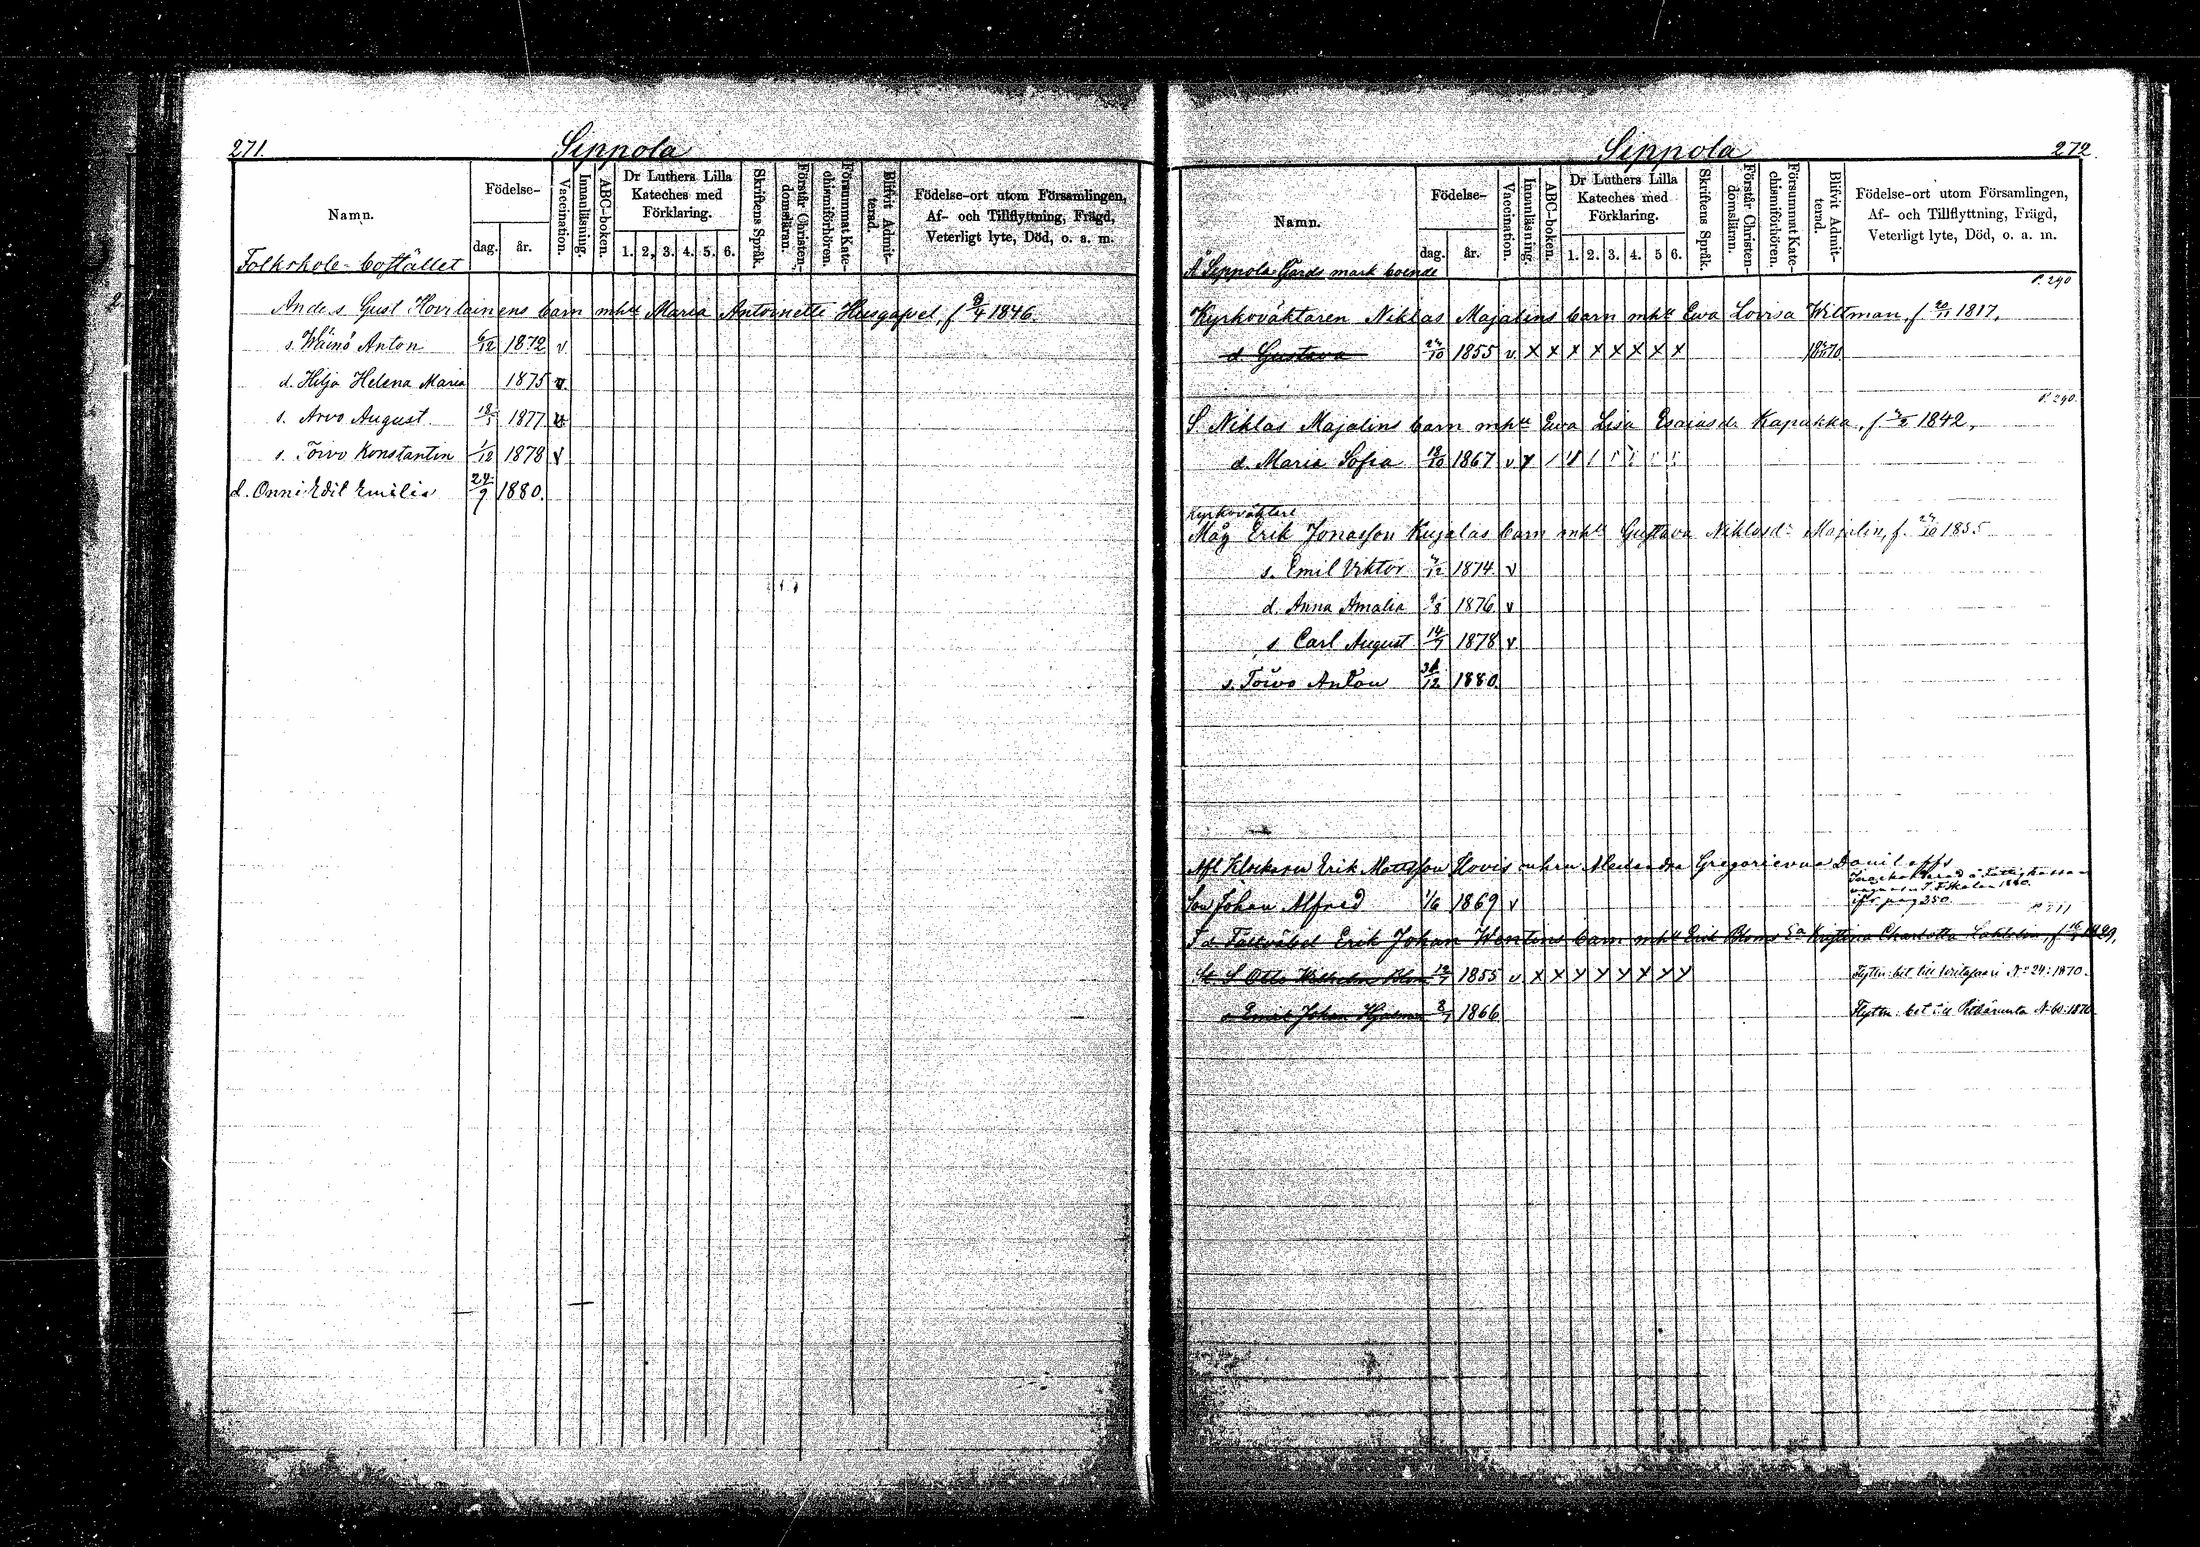 271.
Sippola
Namn.
Födelse-
dag.
år.
Vaccination.
Innanläsning.
ABC-boken.
Dr Luthers Lilla
Kateches med
Förklaring.
1. 2, 3. 4. 5. 6.
Skriftens Språk.
Förstår Christen-
domsläran.
Försummat Kate-
chismiförhören.
Blifvit Admit-
terad.
Födelse-ort utom Församlingen,
Af- och Tillflyttning, Frägd,
Veterligt lyte, Död, o. a. m.
Folkskole-bostället
Anders Gust Hovilainens barn mhu Maria Antoinette Husgafvel, f 3/4 1846.
s. Wäinö Anton 6/12 1872 v
d. Hilja Helena Maria 1875 v.
s. Arvo August. 18/5 1877 v
s. Toivo Konstantin 1/12 1878 v
d. Onni Edit Emilia 24/9 1880.
Sippola
272
Namn.
Födelse-
dag.
år.
Vaccination.
Innanläsning.
ABC-boken.
Dr Luthers Lilla
Kateches med
Förklaring.
1. 2. 3. 4. 5 6.
Skriftens Språk.
Förstår Christen-
domslärann.
Försummat Kate-
chismiförhören.
Blifvit Admit-
terad.
Födelse-ort utom Församlingen,
Af- och Tillflyttning, Frägd,
Veterligt lyte, Död, o. a. m.
Å Sippola Gårds mark boende
P. 290
Kyrkoväktaren Niklas Majalins barn mhu Ewa Lovisa Wittman, f 20/11 1817,
d Gustava 1855 v. x x x x x x x x
P. 290.
S. Niklas Majalins barn mhu Ewa Lisa Esaiasdr Kapakka, f 1842,
d. Maria Sofia 18/10 1867 v
Kyrkoväktare
Måg Erik Jonasson Kujalas barn mhu Gustava Niklasdr Majalin, f. 1855
s. Emil Viktor 1874 v
d. Anna Amalia 9/8 1876 v
s. Carl August 14/7 1878 v.
s. Toivo Anton 31/12 1880.
Afl Klockaren Erik Mattsson Hovis enkan Alexandra Gregorievna Daniloffs
Son Johan Alfred 1/6 1869 v
ifr. pag 250.
F d Fältväbel Erik Johan Wentins barn mhu Erik Bloms Kristina Charlotta
S Otto Wilhelm Blom 12/7 1855 v. x x x x x x x x Flyttn. bet till No 24: 1870.
s Emil Johan Hjalmar 3/7 1866 Flyttn. bet till